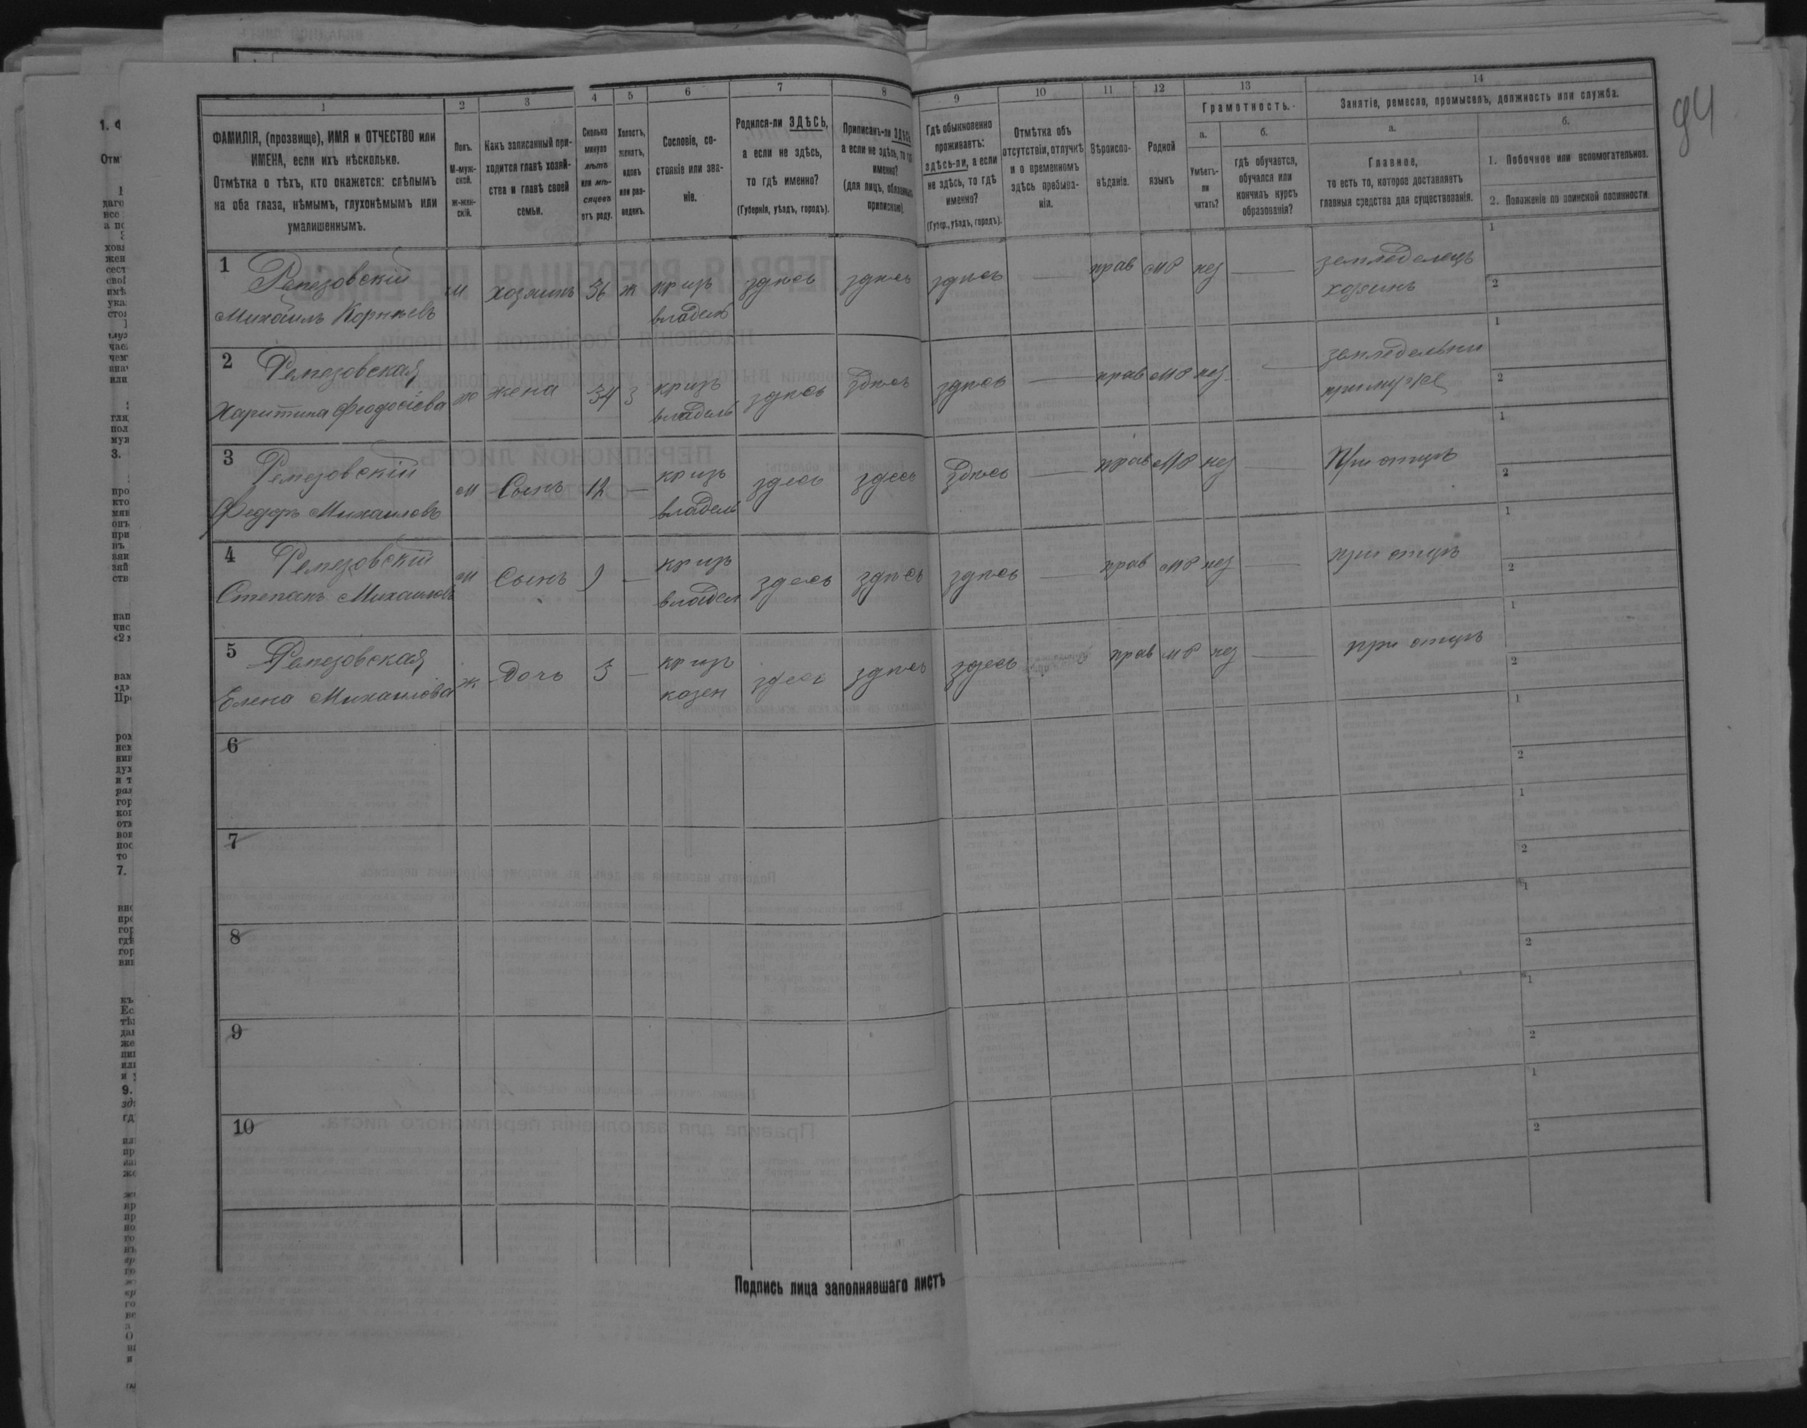 94
1 2 3 4 5 6 7 8 9 10 11 12 13 14
ФАМИЛІЯ, (прозвище), ИМЯ и ОТЧЕСТВО или
ИМЕНА, если ихъ нѣсколько.
Отмѣтка о тѣхъ, кто окажется: слѣпымъ
на оба глаза, нѣмымъ, глухонѣмымъ или
умалишеннымъ.
Полъ.
М-муж-
ской.
Ж-жен-
скій.
Какъ записанный при-
ходится главѣ хозяй-
ства и главѣ своей
семьи.
Сколько
минуло
лѣтъ
или мѣ-
сяцевъ
отъ роду.
Холостъ,
женатъ,
вдовъ
или раз-
веденъ.
Сословіе, со-
стояніе или зва-
ніе.
Родился-ли ЗДѢСЬ,
а если не здѣсь,
то гдѣ именно?
(Губернія, уѣздъ, городъ).
Приписанъ-ли ЗДѢСЬ
а если не здѣсь, то гдѣ
именно?
(для лицъ, обязанныхъ
припискою).
Гдѣ обыкновенно
проживаетъ:
здѣсь-ли, а если
не здѣсь, то гдѣ
именно?
(Губер., уѣздъ, городъ).
Отмѣтка объ
отсутствіи, отлучкѣ
и о временномъ
здѣсь пребыва-
ніи.
Вѣроиспо-
вѣданіе.
Родной
языкъ
Грамотность.
а.
Умѣетъ-
ли
читать?
б.
гдѣ обучается,
обучался или
кончилъ курсъ
образованія?
Занятіе, ремесло, промыселъ, должность или служба.
а.
Главное,
то есть то, которое доставляетъ
главныя средства для существованія.
б.
1. Побочное или вспомогательное.
2. Положеніе по воинской повинности
1 Ремезовскій м хозяинъ 36 ж кр изъ здѣсь здѣсь здѣсь — прав мр нез — земледелецъ 1
Михаилъ Корнѣевъ владел хозяинъ 2
2 Ремезовская ж жена 34 з кр изъ здѣсь здѣсь здѣсь — прав мр нез — 1
Харитина Феодосіева владел при мужѣ 2
3 Ремезовскій м Сынъ 12 — кр изъ здесь здесь здѣсь — прав мр нез — При отцѣ 1
Федоръ Михаиловъ владел 2
4 Ремезовскій м Сынъ 9 — кр изъ здесь здѣсь здѣсь — прав мр нез — при отцѣ 1
Степанъ Михаиловъ владел 2
5 Ремезовская ж Дочь 3 — кр изъ здесь здѣсь здесь прав мр нез — при отцѣ 1
Елена Михаилова казен 2
6 1
2
7 1
2
8 1
2
9 1
2
10 1
2
Подпись лица заполнявшаго листъ